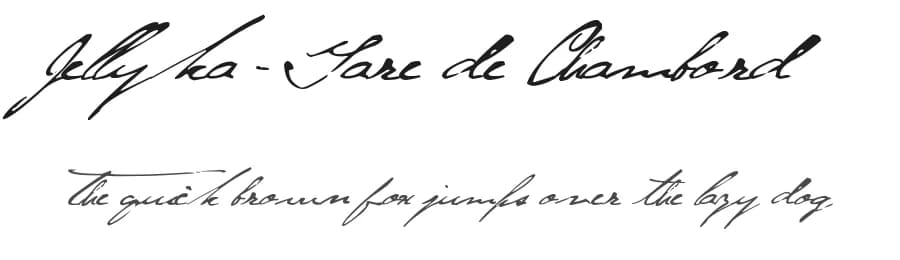 Jellyka - Gare de Chambord
the quick brown fox jumps over the lazy dog.